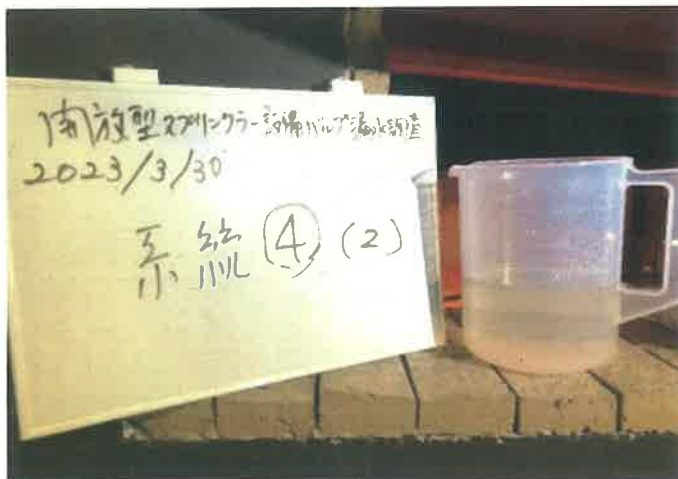 開放型スプリンクラー設備バルブ漏水調査
2023/3/30
系統 ④ (2)